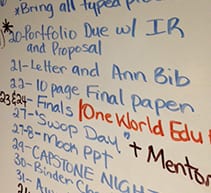 *Bring all typed pro
*20-Portfolio Due w/ IR
and Proposal
21-Letter and Ann Bib
22-10 page Final paper
23&24-Finals One World Edu
27-"Swop Day" + Mentor
27-8-Mock PPt
29-CAPSTONE NIGH
30-Binder Che
31-